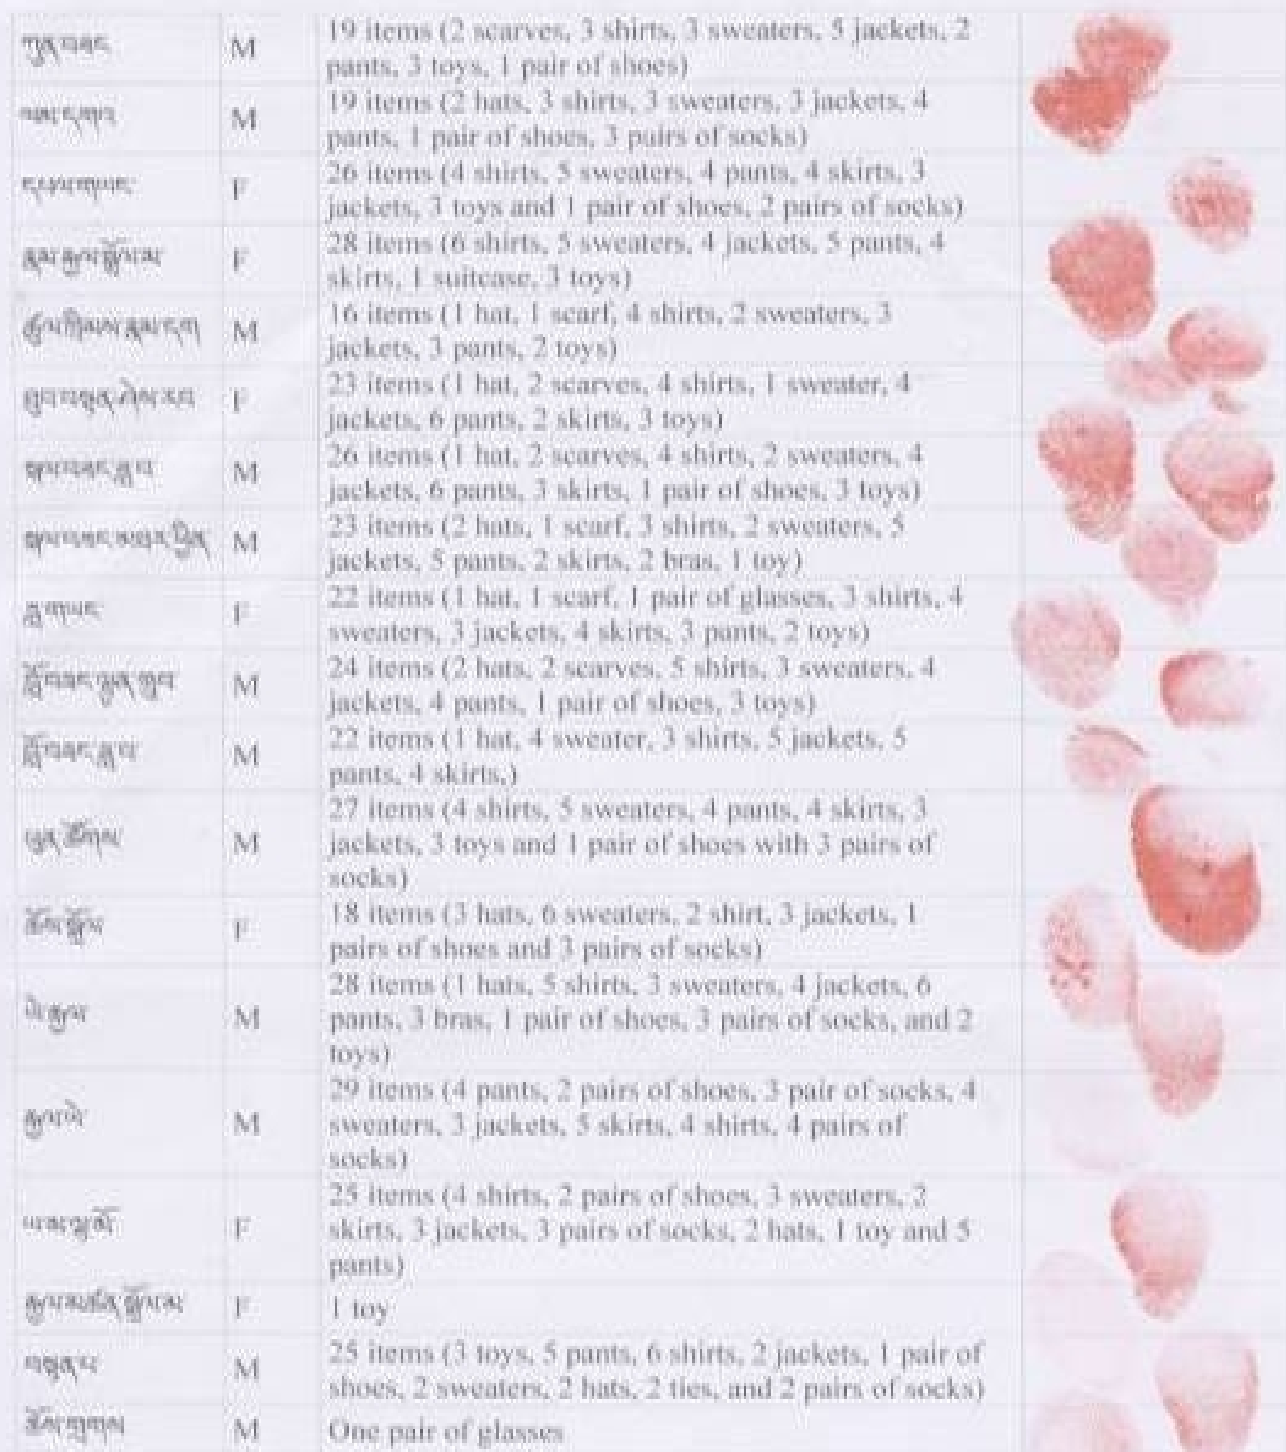 ཀུན་བཟང་ M 19 items (2 scarves, 3 shirts, 3 sweaters, 5 jackets, 2
pants, 3 toys, 1 pair of shoes)
M 19 items (2 hats, 3 shirts, 3 sweaters, 3 jackets, 4
pants, 1 pair of shoes, 3 pairs of socks)
དཔལ་གཡང་ F 26 items (4 shirts, 5 sweaters, 4 pants, 4 skirts, 3
jackets, 3 toys and 1 pair of shoes, 2 pairs of socks)
རྣམ་རྒྱལ་སྒྲོལ་མ་ F 28 items (6 shirts, 5 sweaters, 4 jackets, 5 pants, 4
skirts, 1 suitcase, 3 toys)
ཚུལ་ཁྲིམས་རྣམ་དག M 16 items (1 hat, 1 scarf, 4 shirts, 2 sweaters, 3
jackets, 3 pants, 2 toys)
ཐུབ་བསྟན་ཤེས་རབ F 23 items (1 hat, 2 scarves, 4 shirts, 1 sweater, 4
jackets, 6 pants, 2 skirts, 3 toys)
སྐལ་བཟང་ཟླ་བ M 26 items (1 hat, 2 scarves, 4 shirts, 2 sweaters, 4
jackets, 6 pants, 3 skirts, 1 pair of shoes, 3 toys)
སྐལ་བཟང་མཁའ་ M 23 items (2 hats, 1 scarf, 3 shirts, 2 sweaters, 5
jackets, 5 pants, 2 skirts, 2 bras, 1 toy)
F 22 items (1 hat, 1 scarf, 1 pair of glasses, 3 shirts, 4
sweaters, 3 jackets, 4 skirts, 3 pants, 2 toys)
བློ་བཟང་ལྷུན་གྲུབ M 24 items (2 hats, 2 scarves, 5 shirts, 3 sweaters, 4
jackets, 4 pants, 1 pair of shoes, 3 toys)
བློ་བཟང་ཟླ་བ M 22 items (1 hat, 4 sweater, 3 shirts, 5 jackets, 5
pants, 4 skirts,)
ཕུན་ཚོགས M 27 items (4 shirts, 5 sweaters, 4 pants, 4 skirts, 3
jackets, 3 toys and 1 pair of shoes with 3 pairs of
socks)
F 18 items (3 hats, 6 sweaters, 2 shirt, 3 jackets, 1
pairs of shoes and 3 pairs of socks)
M 28 items (1 hats, 5 shirts, 3 sweaters, 4 jackets, 6
pants, 3 bras, 1 pair of shoes, 3 pairs of socks, and 2
toys)
M 29 items (4 pants, 2 pairs of shoes, 3 pair of socks, 4
sweaters, 3 jackets, 5 skirts, 4 shirts, 4 pairs of
socks)
F 25 items (4 shirts, 2 pairs of shoes, 3 sweaters, 2
skirts, 3 jackets, 3 pairs of socks, 2 hats, 1 toy and 5
pants)
F 1 toy
M 25 items (3 toys, 5 pants, 6 shirts, 2 jackets, 1 pair of
shoes, 2 sweaters, 2 hats, 2 ties, and 2 pairs of socks)
M One pair of glasses